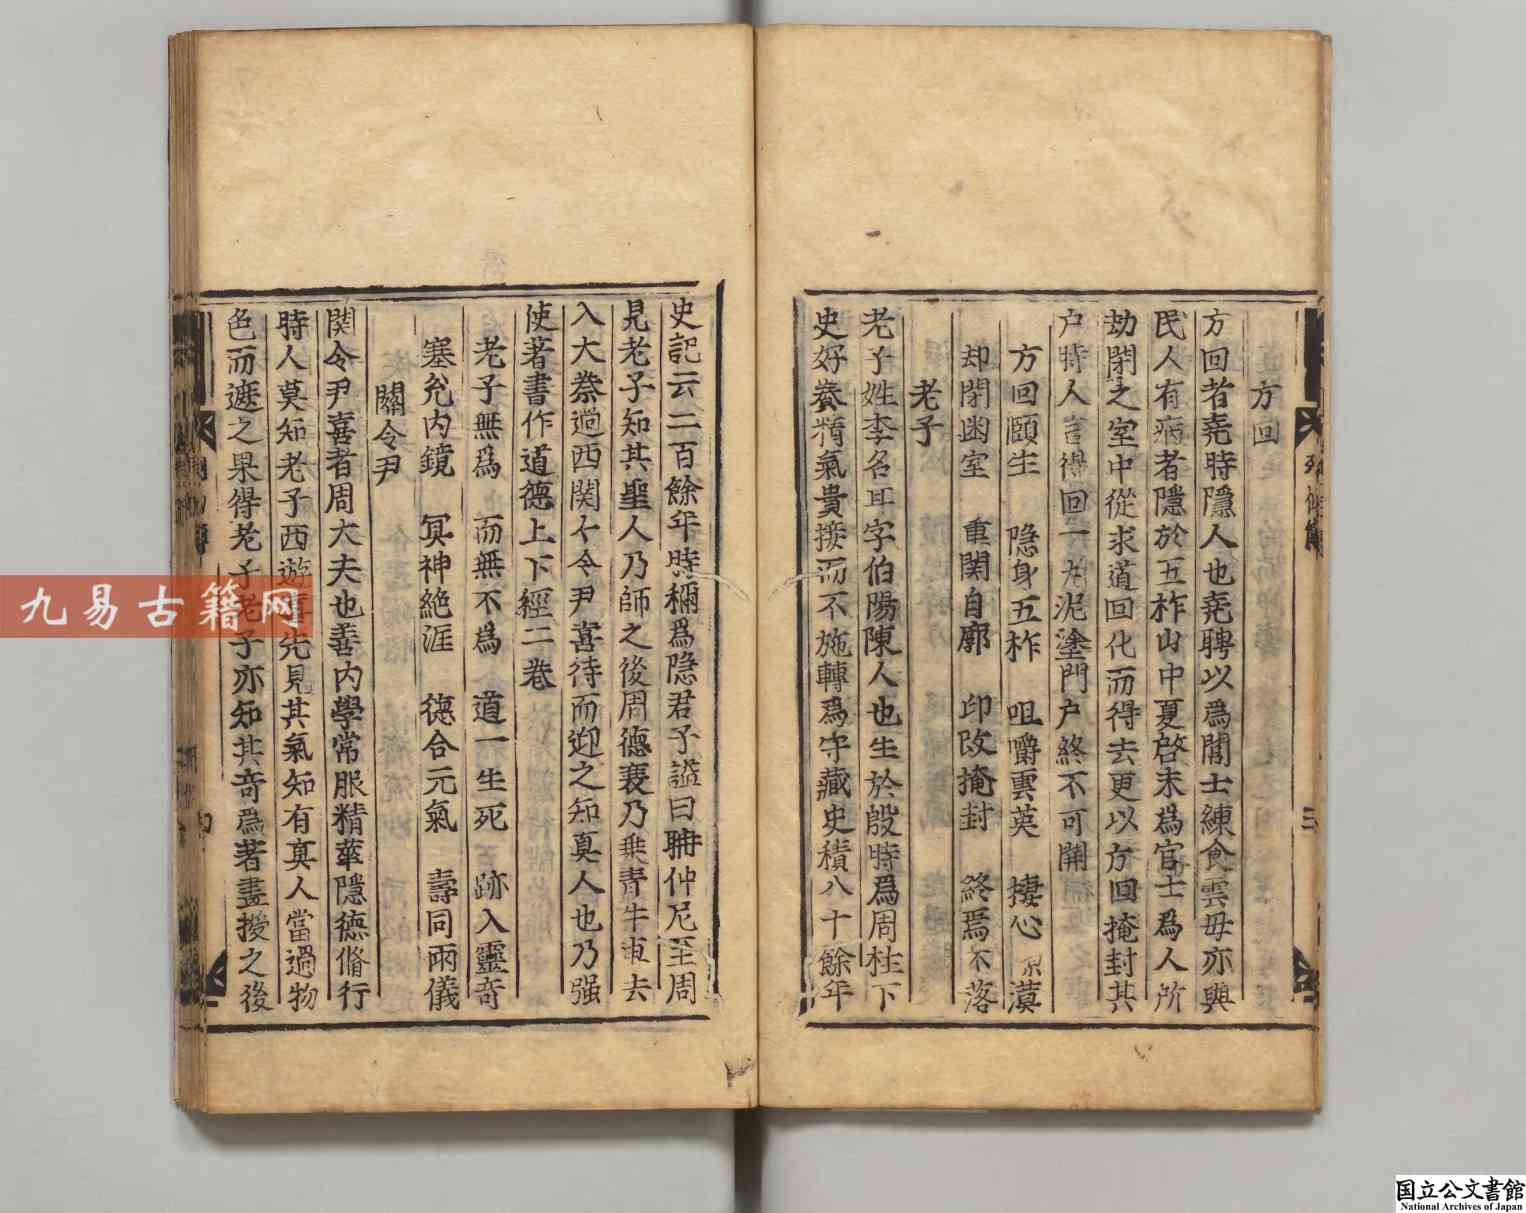 方回
方回者堯時隱人也堯聘以爲閭士練食雲母亦與
民人有病者隱於五柞山中夏啓末爲宦士爲人所
劫閉之室中從求道回化而得去更以方回掩封其
户時人言得回一丸泥塗門户終不可開
方回頤生　隱身五柞　咀嚼雲英　棲心　漠
却閉幽室　重関自廓　印改掩封　終焉不落
老子
老子姓李名耳字伯陽陳人也生於殷時爲周柱下
史好養精氣貴接而不施轉爲守藏史積八十餘年
史記云二百餘年時稱爲隱君子諡曰聃仲尼至周
見老子知其聖人乃師之後周德衰乃乗青牛車去
入大秦過西関关令尹喜待而迎之知真人也乃强
使著書作道德上下經二卷
老子無爲　而無不爲　道一生死　跡入靈奇
塞兊内鏡　冥神絶涯　德合元氣　壽同兩儀
關令尹
関令尹喜者周大夫也善内學常服精華隱德脩行
時人莫知老子西遊喜先見其氣知有真人當過物
色而遮之果得老子老子亦知其奇爲著書授之後
九易古籍网
国立公文書館
National Archives of Japan